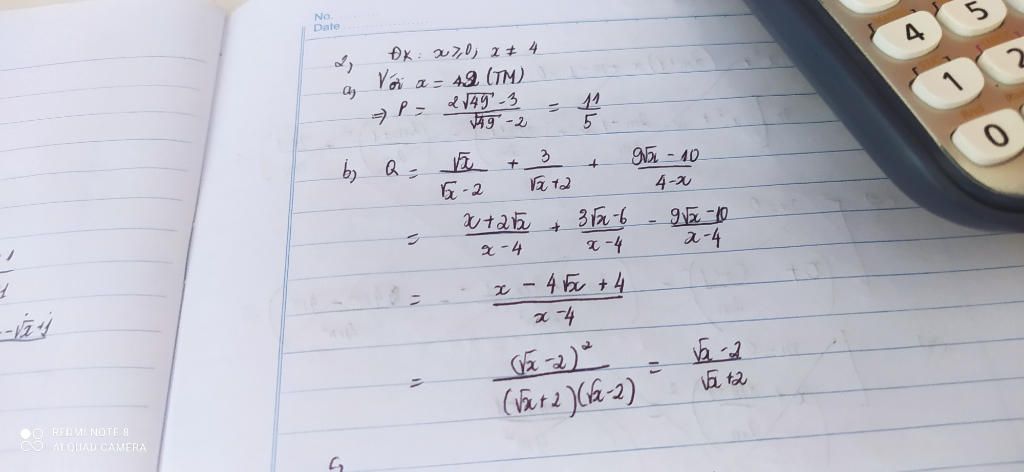 No.
Date
2, ĐK: x ≥ 0, x ≠ 4
a, Với x = 49 (TM)
⇒ P = (2√49 - 3)/(√49 - 2) = 11/5
b, Q = √x/(√x - 2) + 3/(√x + 2) + (9√x - 10)/(4 - x)
= (x + 2√x)/(x - 4) + (3√x - 6)/(x - 4) - (9√x - 10)/(x - 4)
= (x - 4√x + 4)/(x - 4)
= (√x - 2)²/((√x + 2)(√x - 2)) = (√x - 2)/(√x + 2)
4
5
1
2
0
REDMI NOTE 8
AI QUAD CAMERA